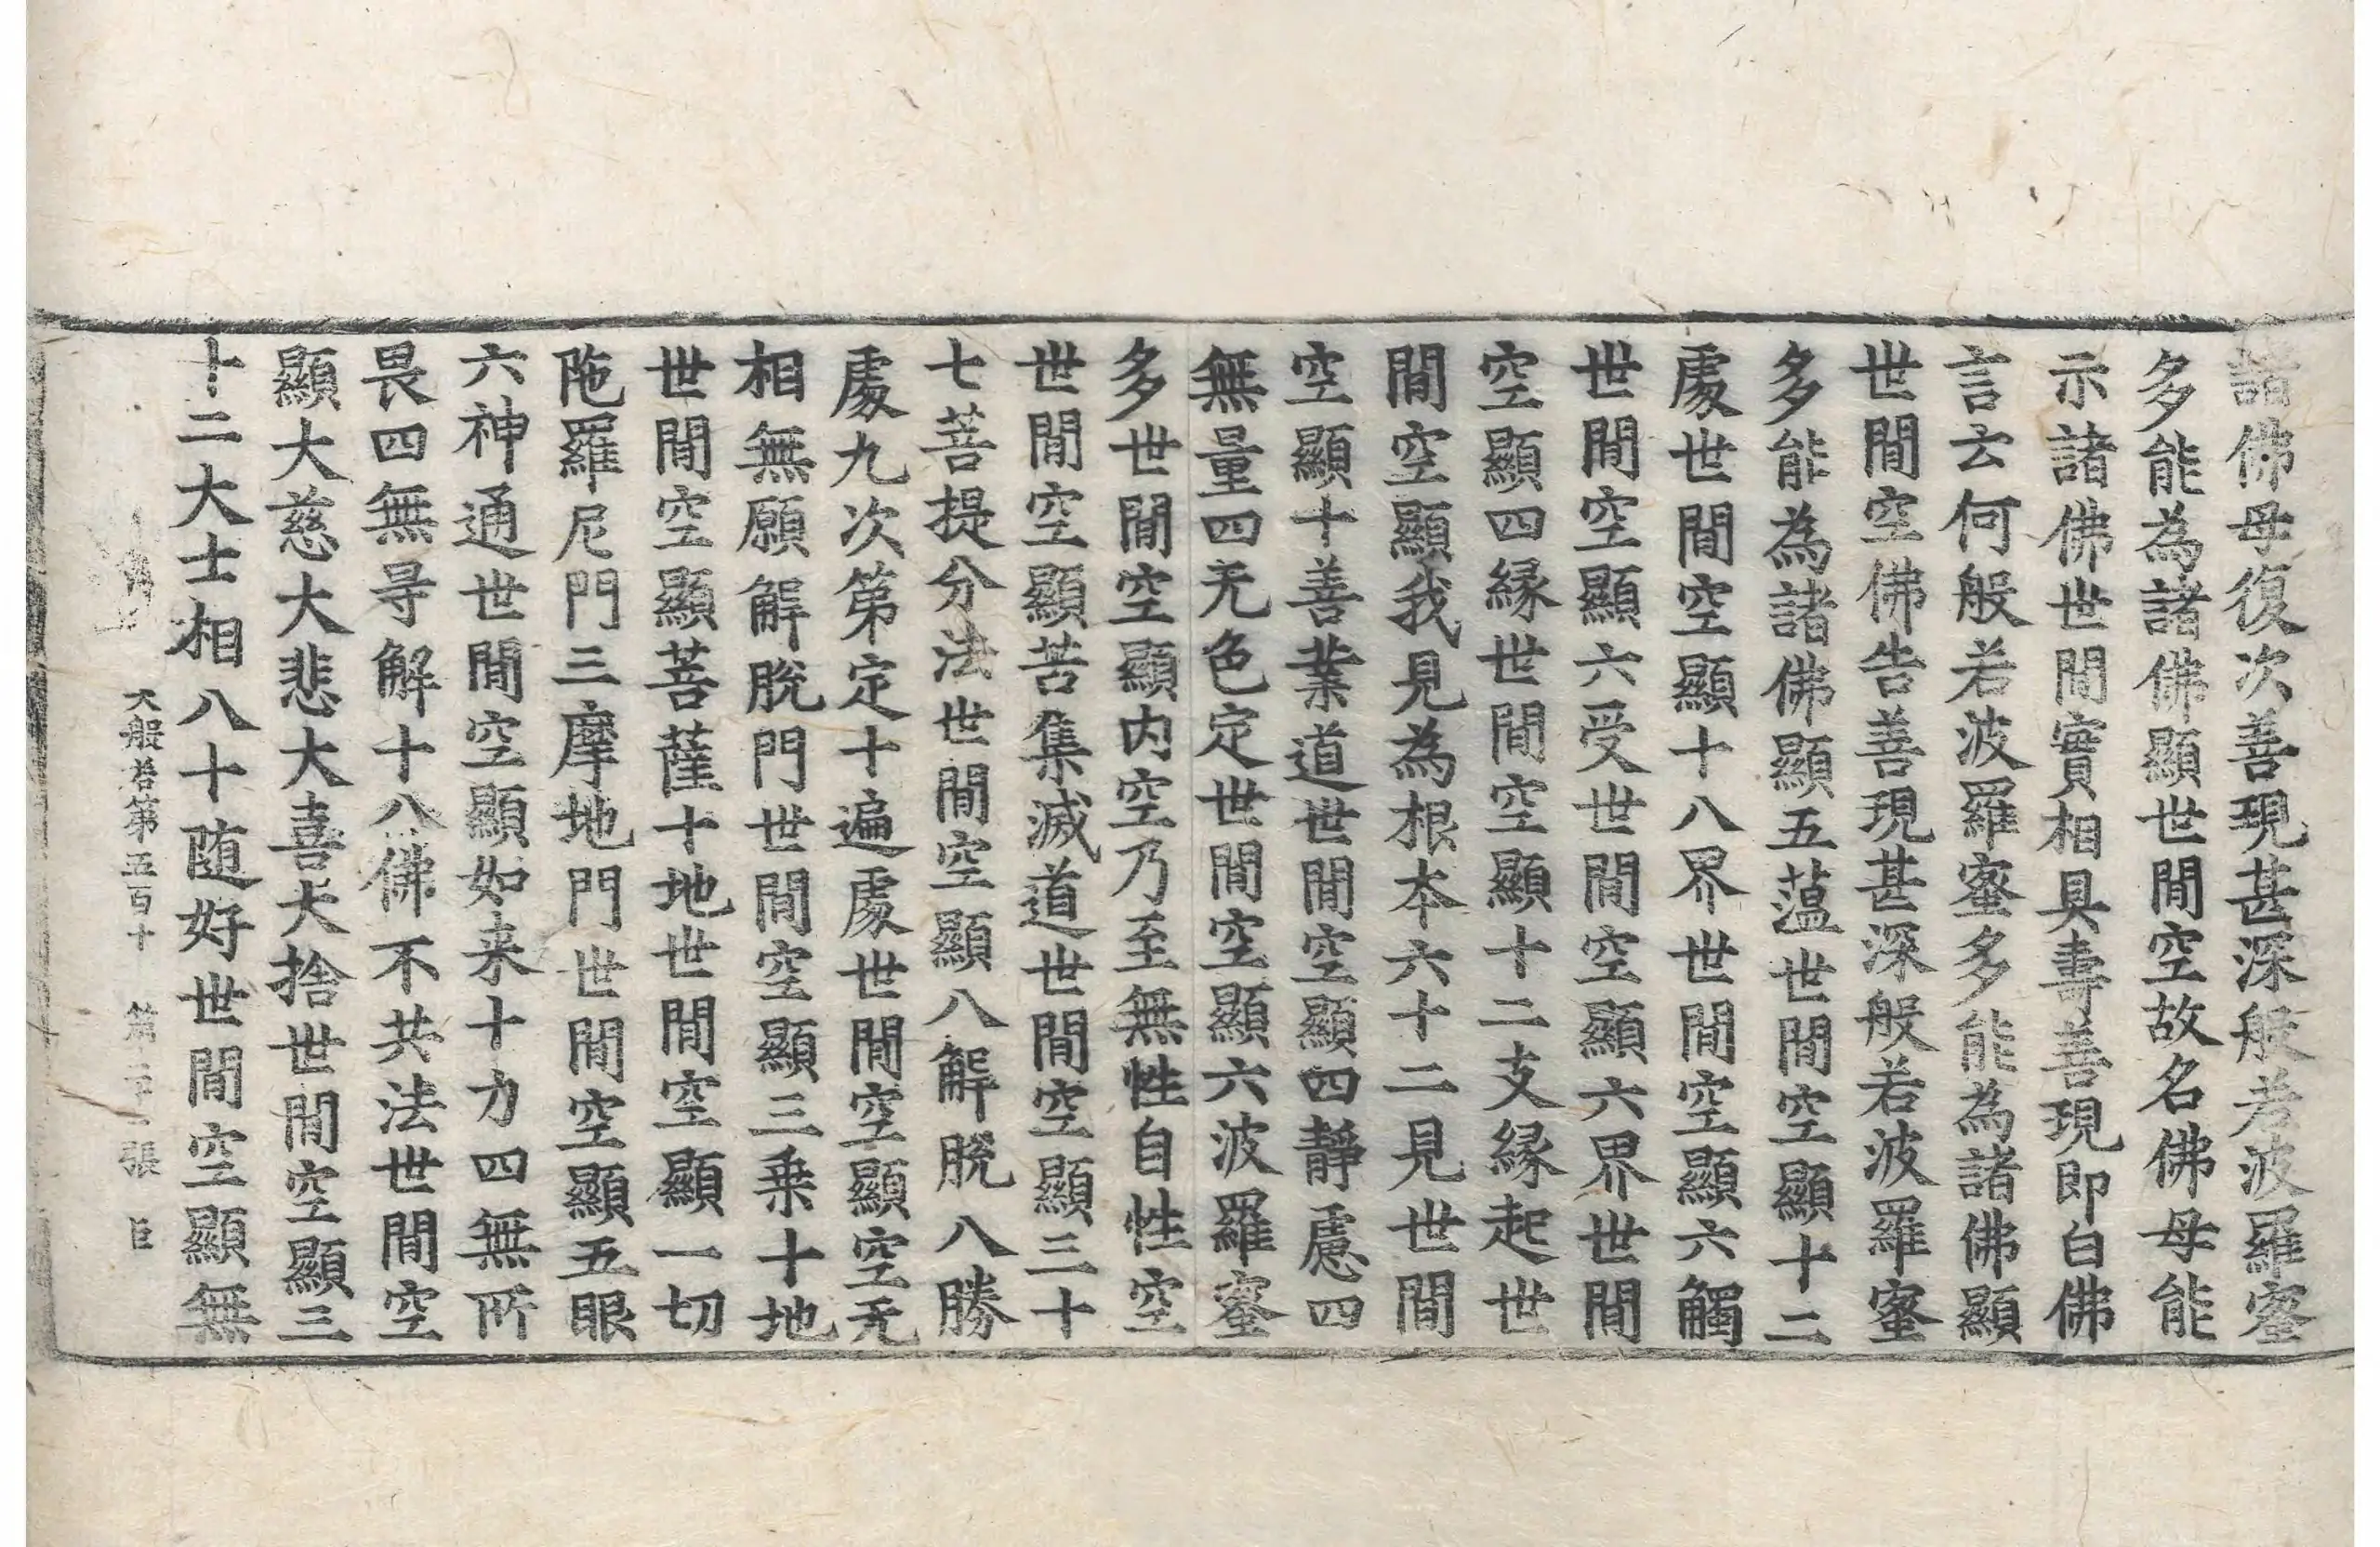 諸佛母復次善現甚深般若波羅蜜
多能為諸佛顯世間空故名佛母能
示諸佛世間實相具壽善現即白佛
言云何般若波羅蜜多能為諸佛顯
世間空佛告善現甚深般若波羅蜜
多能為諸佛顯五蘊世間空顯十二
處世間空顯十八界世間空顯六觸
世間空顯六受世間空顯六界世間
空顯四緣世間空顯十二支緣起世
間空顯我見為根本六十二見世間
空顯十善業道世間空顯四靜慮四
無量四无色定世間空顯六波羅蜜
多世間空顯内空乃至無性自性空
世間空顯苦集滅道世間空顯三十
七菩提分法世間空顯八解脫八勝
處九次第定十遍處世間空顯空无
相無願解脫門世間空顯三乗十地
世間空顯菩薩十地世間空顯一切
陁羅尼門三摩地門世間空顯五眼
六神通世間空顯如来十力四無所
畏四無㝵解十八佛不共法世間空
顯大慈大悲大喜大捨世間空顯三
十二大士相八十随好世間空顯無
大般若第五百十 第二十二張 巨